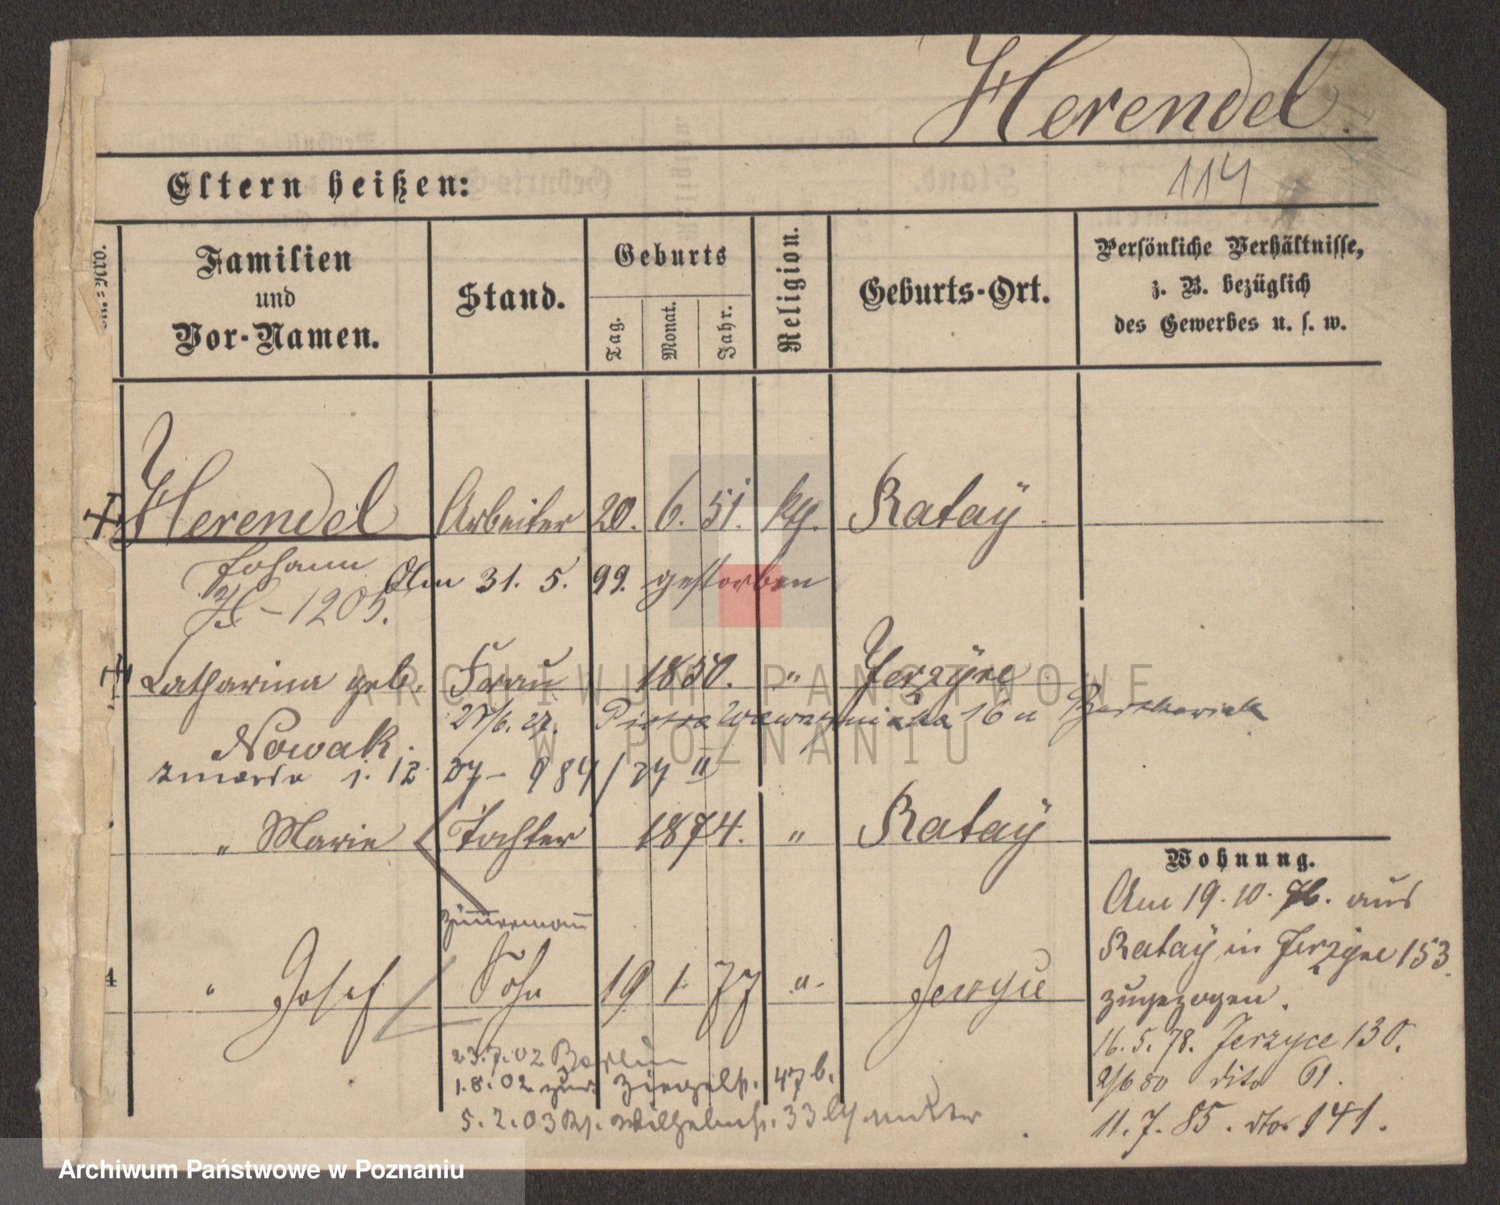 Herendel.
114
Eltern heißen:
Nro.
Familien
und
Vor-Namen.
Stand.
Geburts
Tag.
Monat.
Jahr.
Religion.
Geburts-Ort.
Persönliche Verhältnisse,
z. B. bezüglich
des Gewerbes u. s. w.
Herendel Arbeiter 20. 6. 51. kth. Ratay
Johann Am 31. 5. 99. gestorben
H-1205.
Catharina geb. Frau 1850. " Jerzyce
27/6. 27. Piotra Wawrzyniaka 16 u
Nowak.
zmarła 1. 12. 27 - 984/27 II
" Marie Tochter 1874. " Ratay
Zimmermann
4 " Josef Sohn 19 1. 77 " Jerzyce
23.7.02 Berlin
1.8.02 zur Ziegelst. 47b.
5.2.03 Wilhelmst. 33
Wohnung.
Am 19. 10. 76. aus
Ratay in Jerzyce 153.
zugezogen.
16. 5. 78. Jerzyce 130.
2/6 80 dito 61.
11. 7. 85. dto 141.
ARCHIWUM PAŃSTWOWE
W POZNANIU
Archiwum Państwowe w Poznaniu